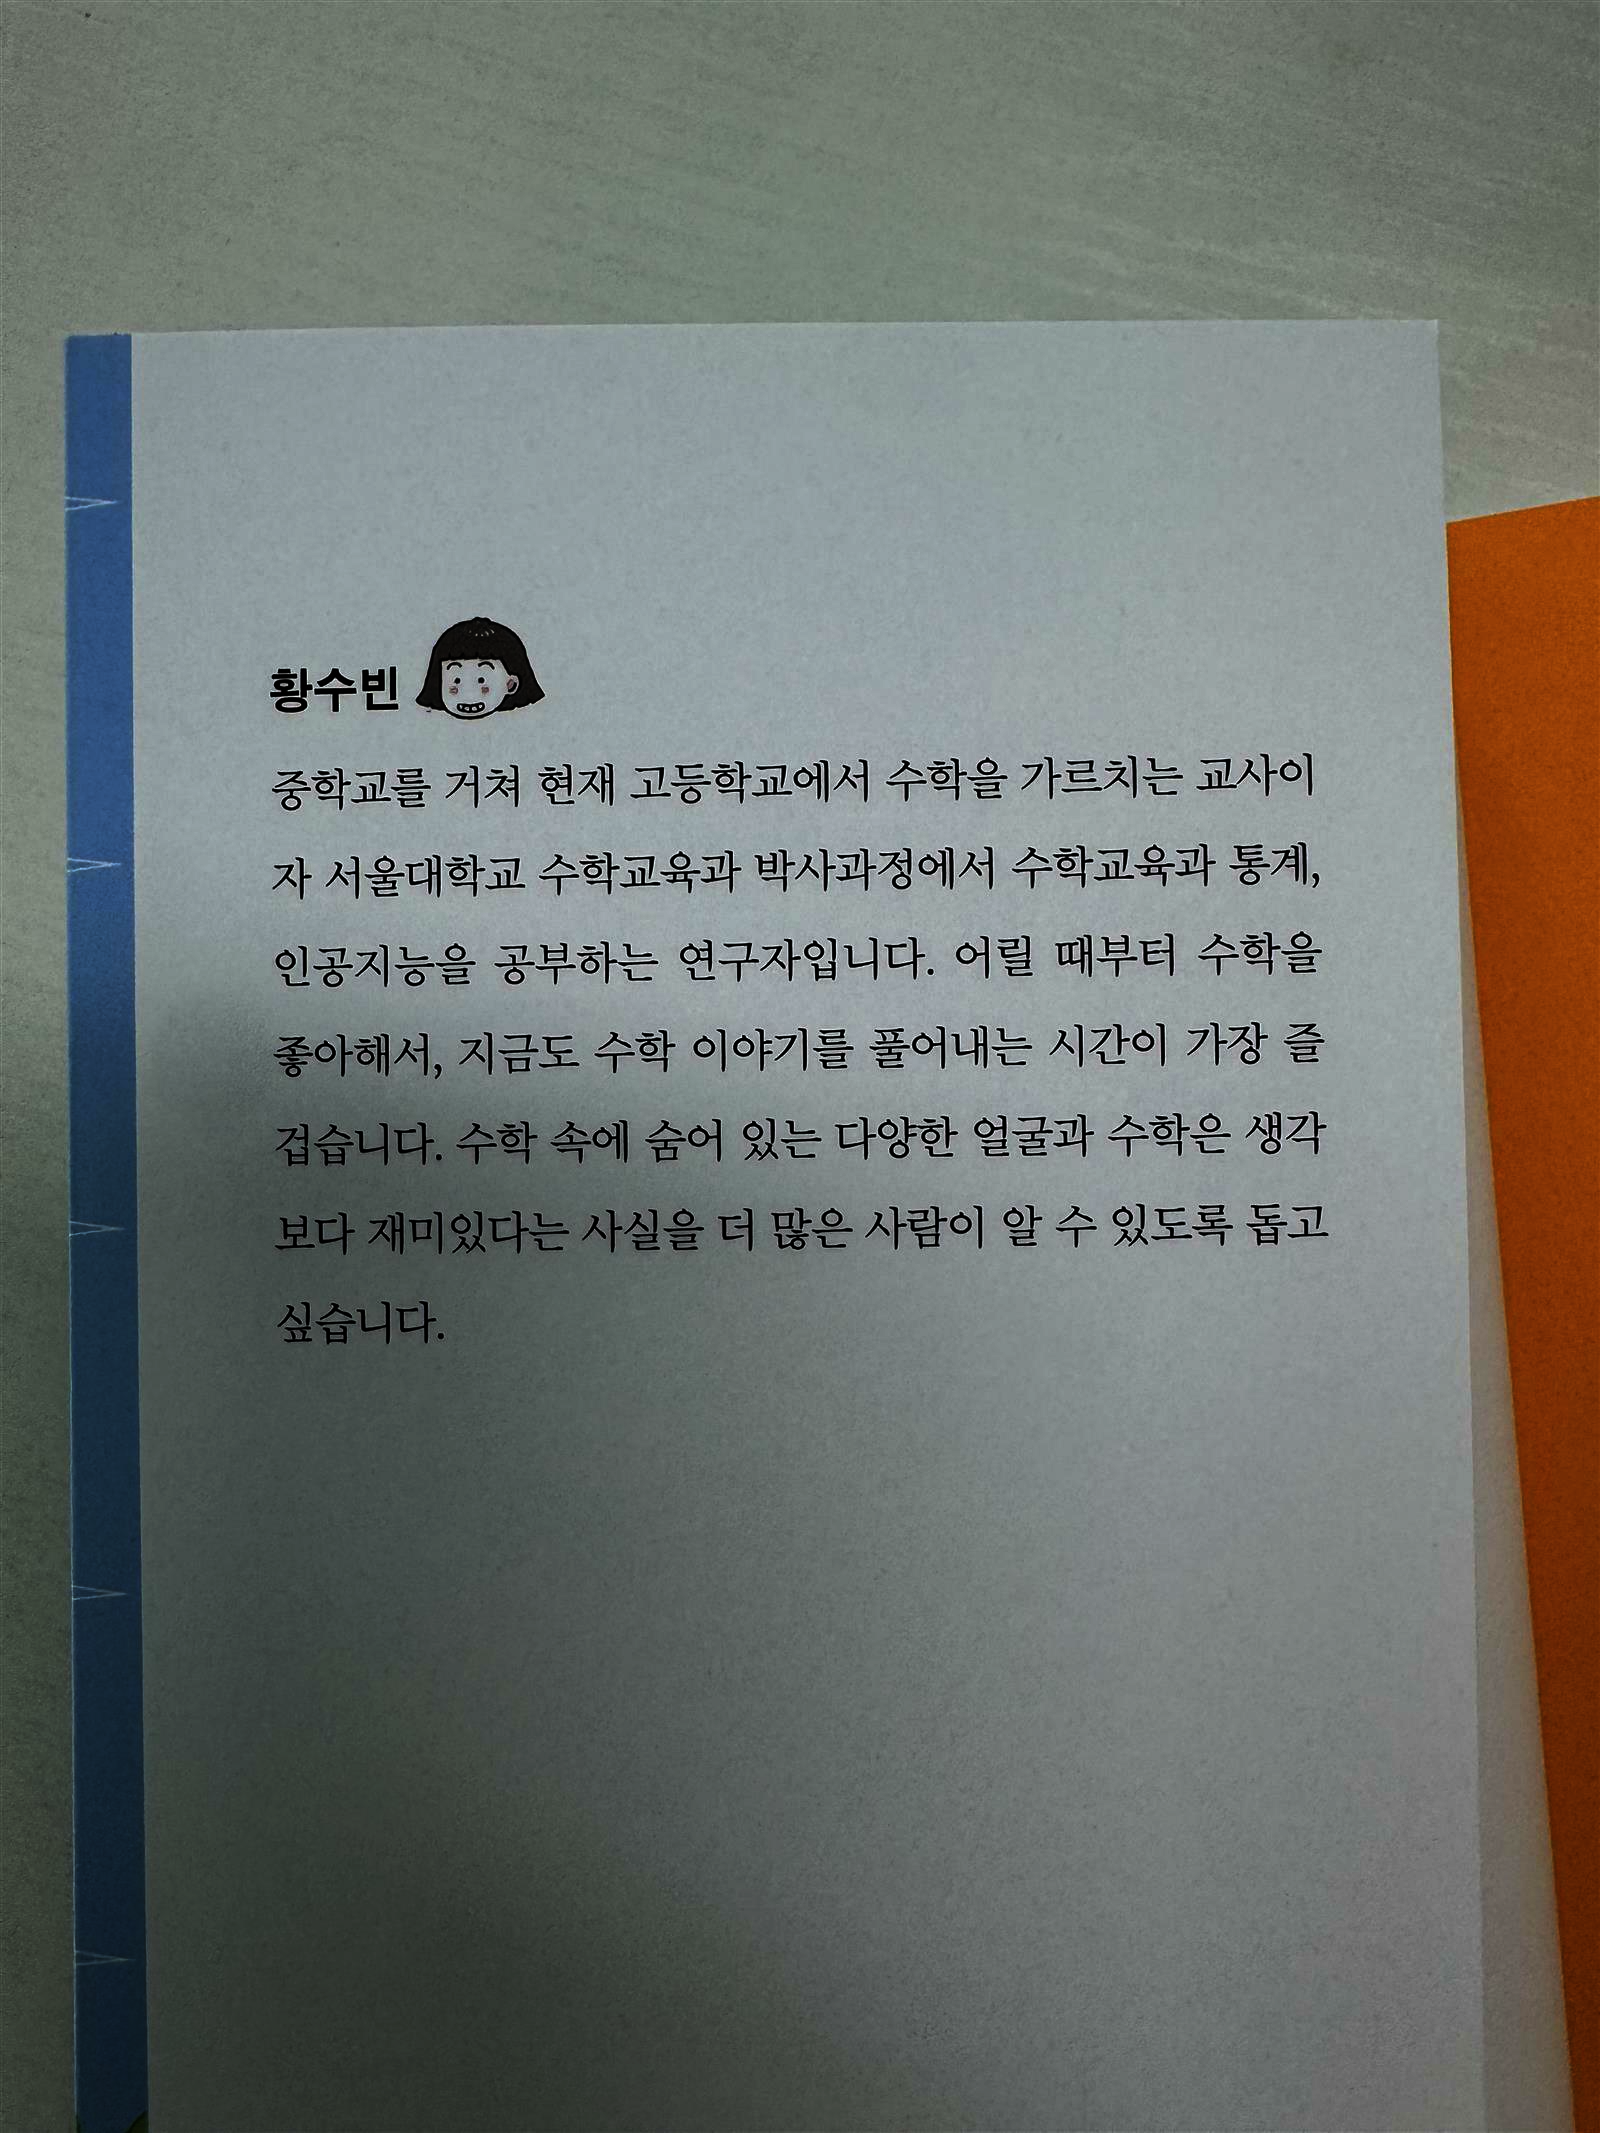 황수빈
중학교를 거쳐 현재 고등학교에서 수학을 가르치는 교사이
자 서울대학교 수학교육과 박사과정에서 수학교육과 통계,
인공지능을 공부하는 연구자입니다. 어릴 때부터 수학을
좋아해서, 지금도 수학 이야기를 풀어내는 시간이 가장 즐
겁습니다. 수학 속에 숨어 있는 다양한 얼굴과 수학은 생각
보다 재미있다는 사실을 더 많은 사람이 알 수 있도록 돕고
싶습니다.